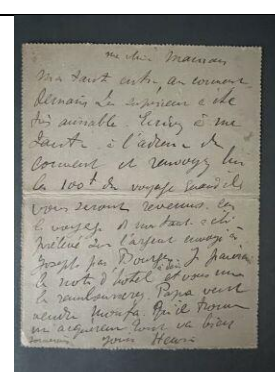 ma chère Maman
Ma tante entre au couvent
demain La supérieure a été
très aimable Écrivez à ma
tante à l'adresse du
couvent et renvoyez lui
les 100f du voyage quand ils
vous seront revenus. car
le voyage de ma tante a été
prélevé sur l'argent envoyé à
Joseph par Je paierai
la note d'hôtel et vous me
la rembourserez. Papa veut
vendre qu'il trouve
un acquéreur tout va bien
Henri